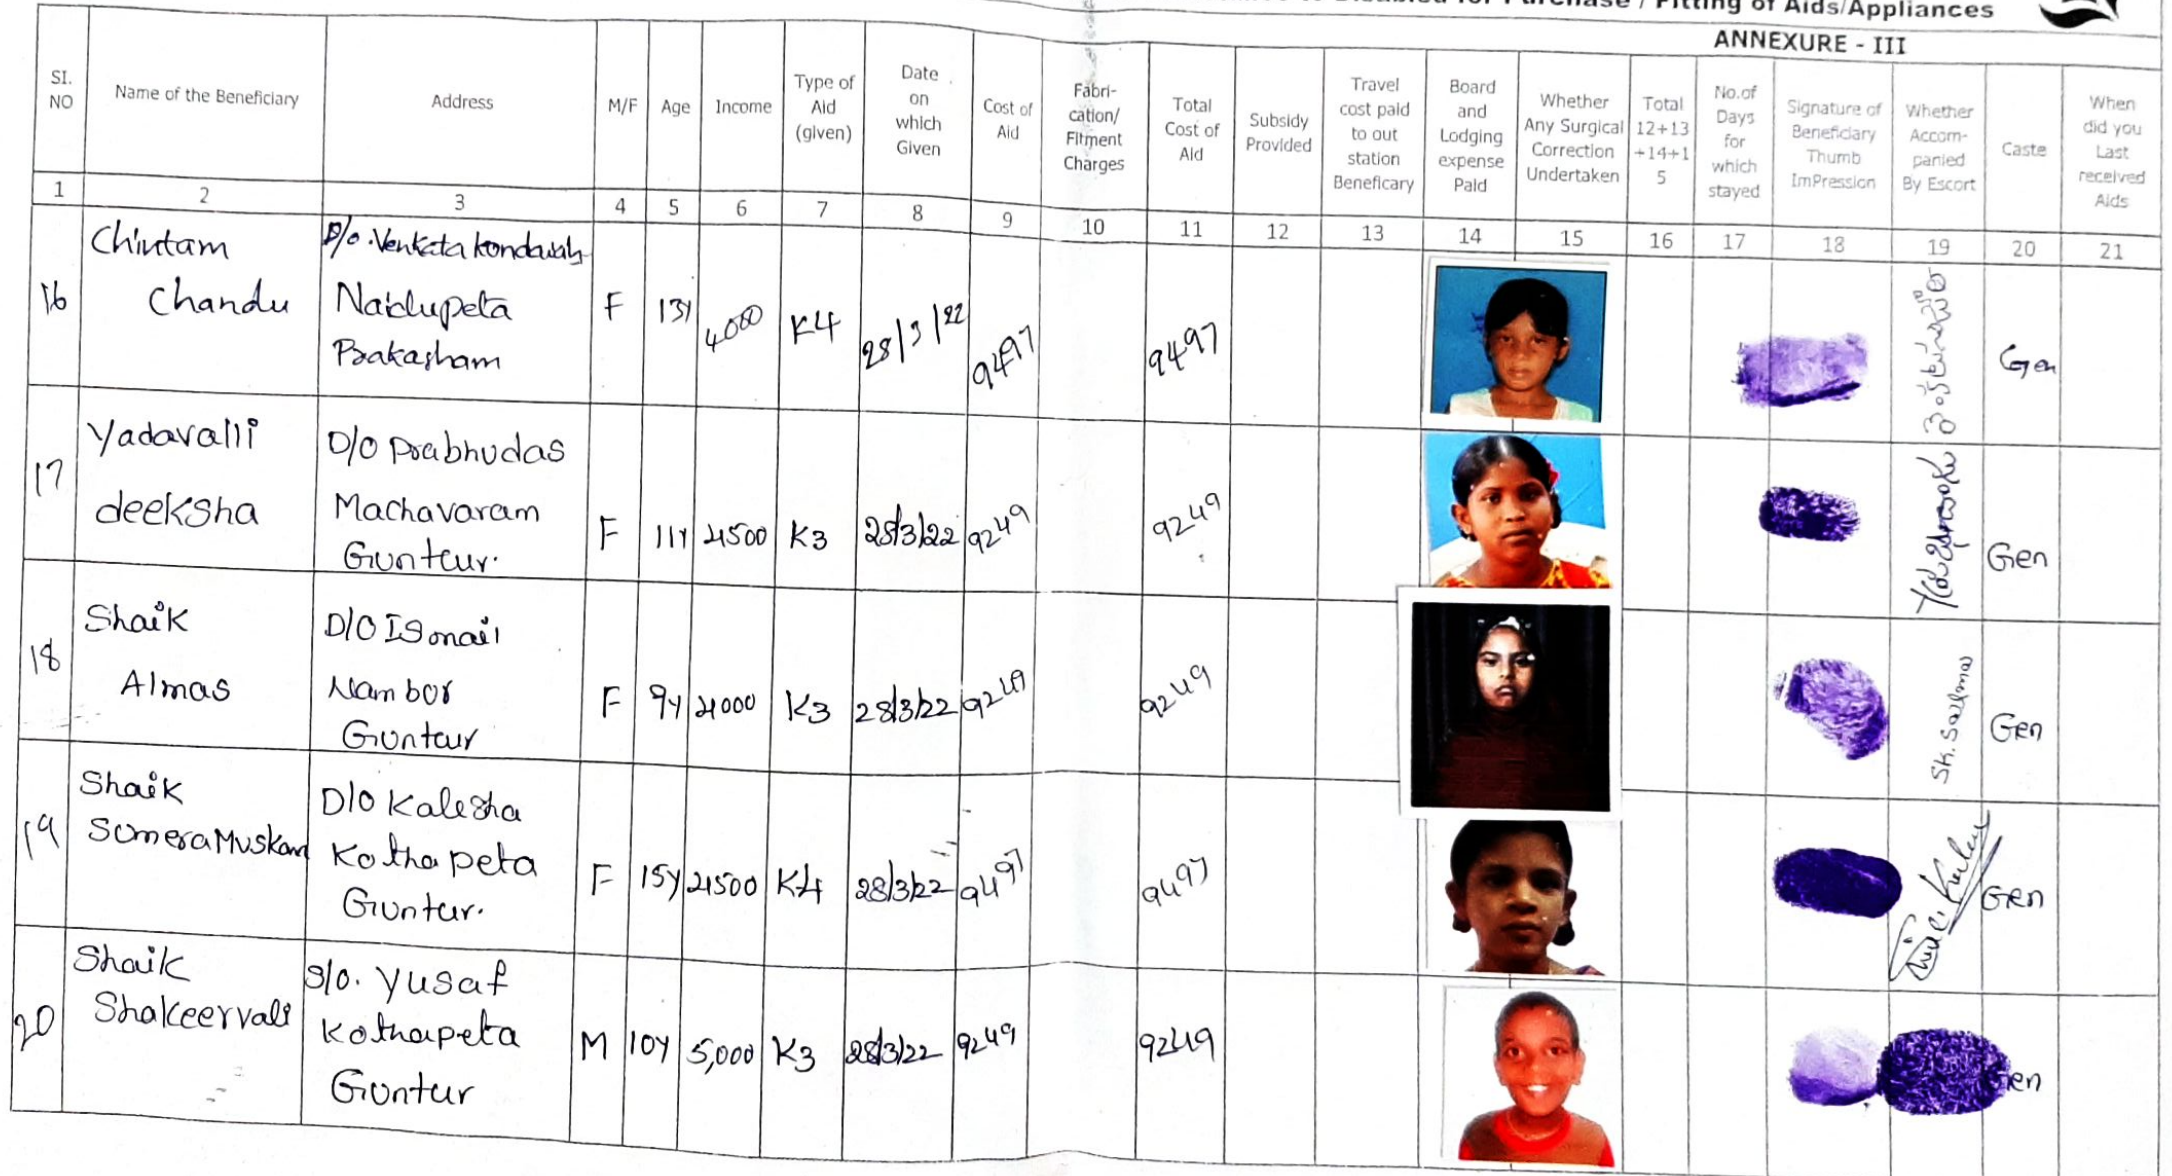 to Disabled for Purchase / Fitting of Aids/Appliances
ANNEXURE - III
SI. NO
Name of the Beneficiary
Address
M/F
Age
Income
Type of Aid (given)
Date on which Given
Cost of Aid
Fabri-cation/ Fitment Charges
Total Cost of Aid
Subsidy Provided
Travel cost paid to out station Beneficary
Board and Lodging expense Paid
Whether Any Surgical Correction Undertaken
Total 12+13 +14+1 5
No.of Days for which stayed
Signature of Beneficiary Thumb ImPression
Whether Accom-panied By Escort
Caste
When did you Last received Aids
1 2 3 4 5 6 7 8 9 10 11 12 13 14 15 16 17 18 19 20 21
Chintam
Chandu
D/o. Venkata
Naidupeta
Prakasham
16 F 13y 4000 K4 28/3/22 9497 9497 Gen
Yadavalli
deeksha
D/O Prabhudas
Machavaram
Guntur.
17 F 11y 4500 K3 28/3/22 9249 9249 Gen
Shaik
Almas
D/O ISmail
Nambor
Guntur
18 F 9y 4000 K3 28/3/22 9249 9249 Sk. Salma Gen
Shaik
SumeraMuskan
D/O Kalesha
Kothapeta
Guntur.
19 F 15y 4500 K4 28/3/22 9497 9497 Gen
Shaik
Shakeervali
S/o. Yusaf
Kothapeta
Guntur
20 M 10Y 5,000 K3 28/3/22 9249 9249 Gen